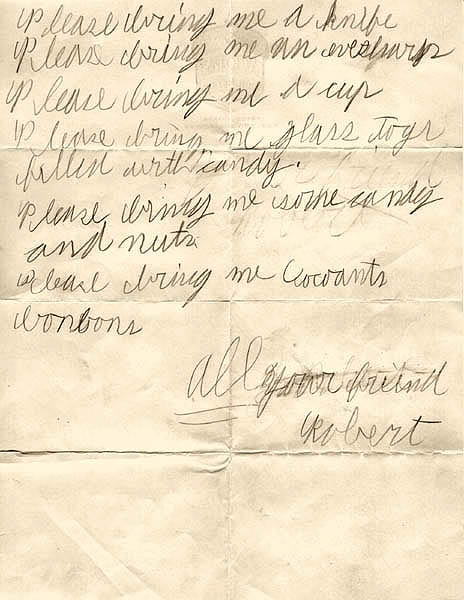 Please bring me a knife
Please bring me an eversharp
Please bring me a cup
Please bring me glass toys
filled with candy.
Please bring me some candy
and nuts
Please bring me Cocoants
bonbons
All your friend
Robert